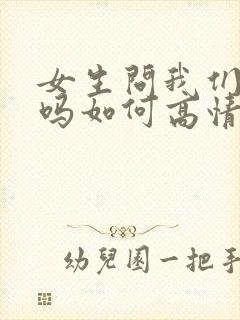 女生問我们
吗如何高情
幼兒園一把手